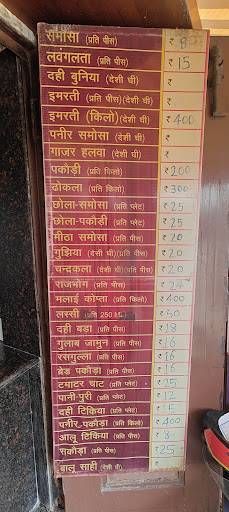 समोसा (प्रति पीस) ₹ 8
लवंगलता (प्रति पीस) ₹ 15
दही बुनिया (देशी घी) ₹
इमरती (प्रति पीस)(देशी घी) ₹
इमरती (किलो)(देशी घी) ₹ 400
पनीर समोसा (देशी घी) ₹
गाजर हलवा (देशी घी) ₹
पकौड़ी (प्रति किलो) ₹ 200
ढोकला (प्रति किलो) ₹ 300
छोला-समोसा (प्रति प्लेट) ₹ 25
छोला-पकौड़ी (प्रति प्लेट) ₹ 25
मीठा समोसा (प्रति पीस) ₹ 20
गुझिया (देशी घी)(प्रति पीस) ₹ 20
चन्द्रकला (देशी घी)(प्रति पीस) ₹ 20
राजभोग (प्रति पीस) ₹
मलाई कोफ्ता (प्रति किलो) ₹ 400
लस्सी (प्रति 250 ML) ₹
दही बड़ा (प्रति पीस) ₹ 18
गुलाब जामुन (प्रति पीस) ₹ 16
रसगुल्ला (प्रति पीस) ₹ 16
ब्रेड पकौड़ा (प्रति पीस) ₹ 16
टमाटर चाट (प्रति प्लेट) ₹
पानी-पुरी (प्रति प्लेट) ₹ 12
दही टिकिया (प्रति प्लेट) ₹
पनीर-पकौड़ा (प्रति किलो) ₹ 400
आलू टिकिया (प्रति पीस) ₹ 8
सकोड़ा (प्रति पीस) ₹ 25
बालू साही (देशी घी) ₹